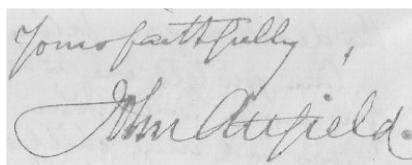 Yours faithfully,
John Attfield.